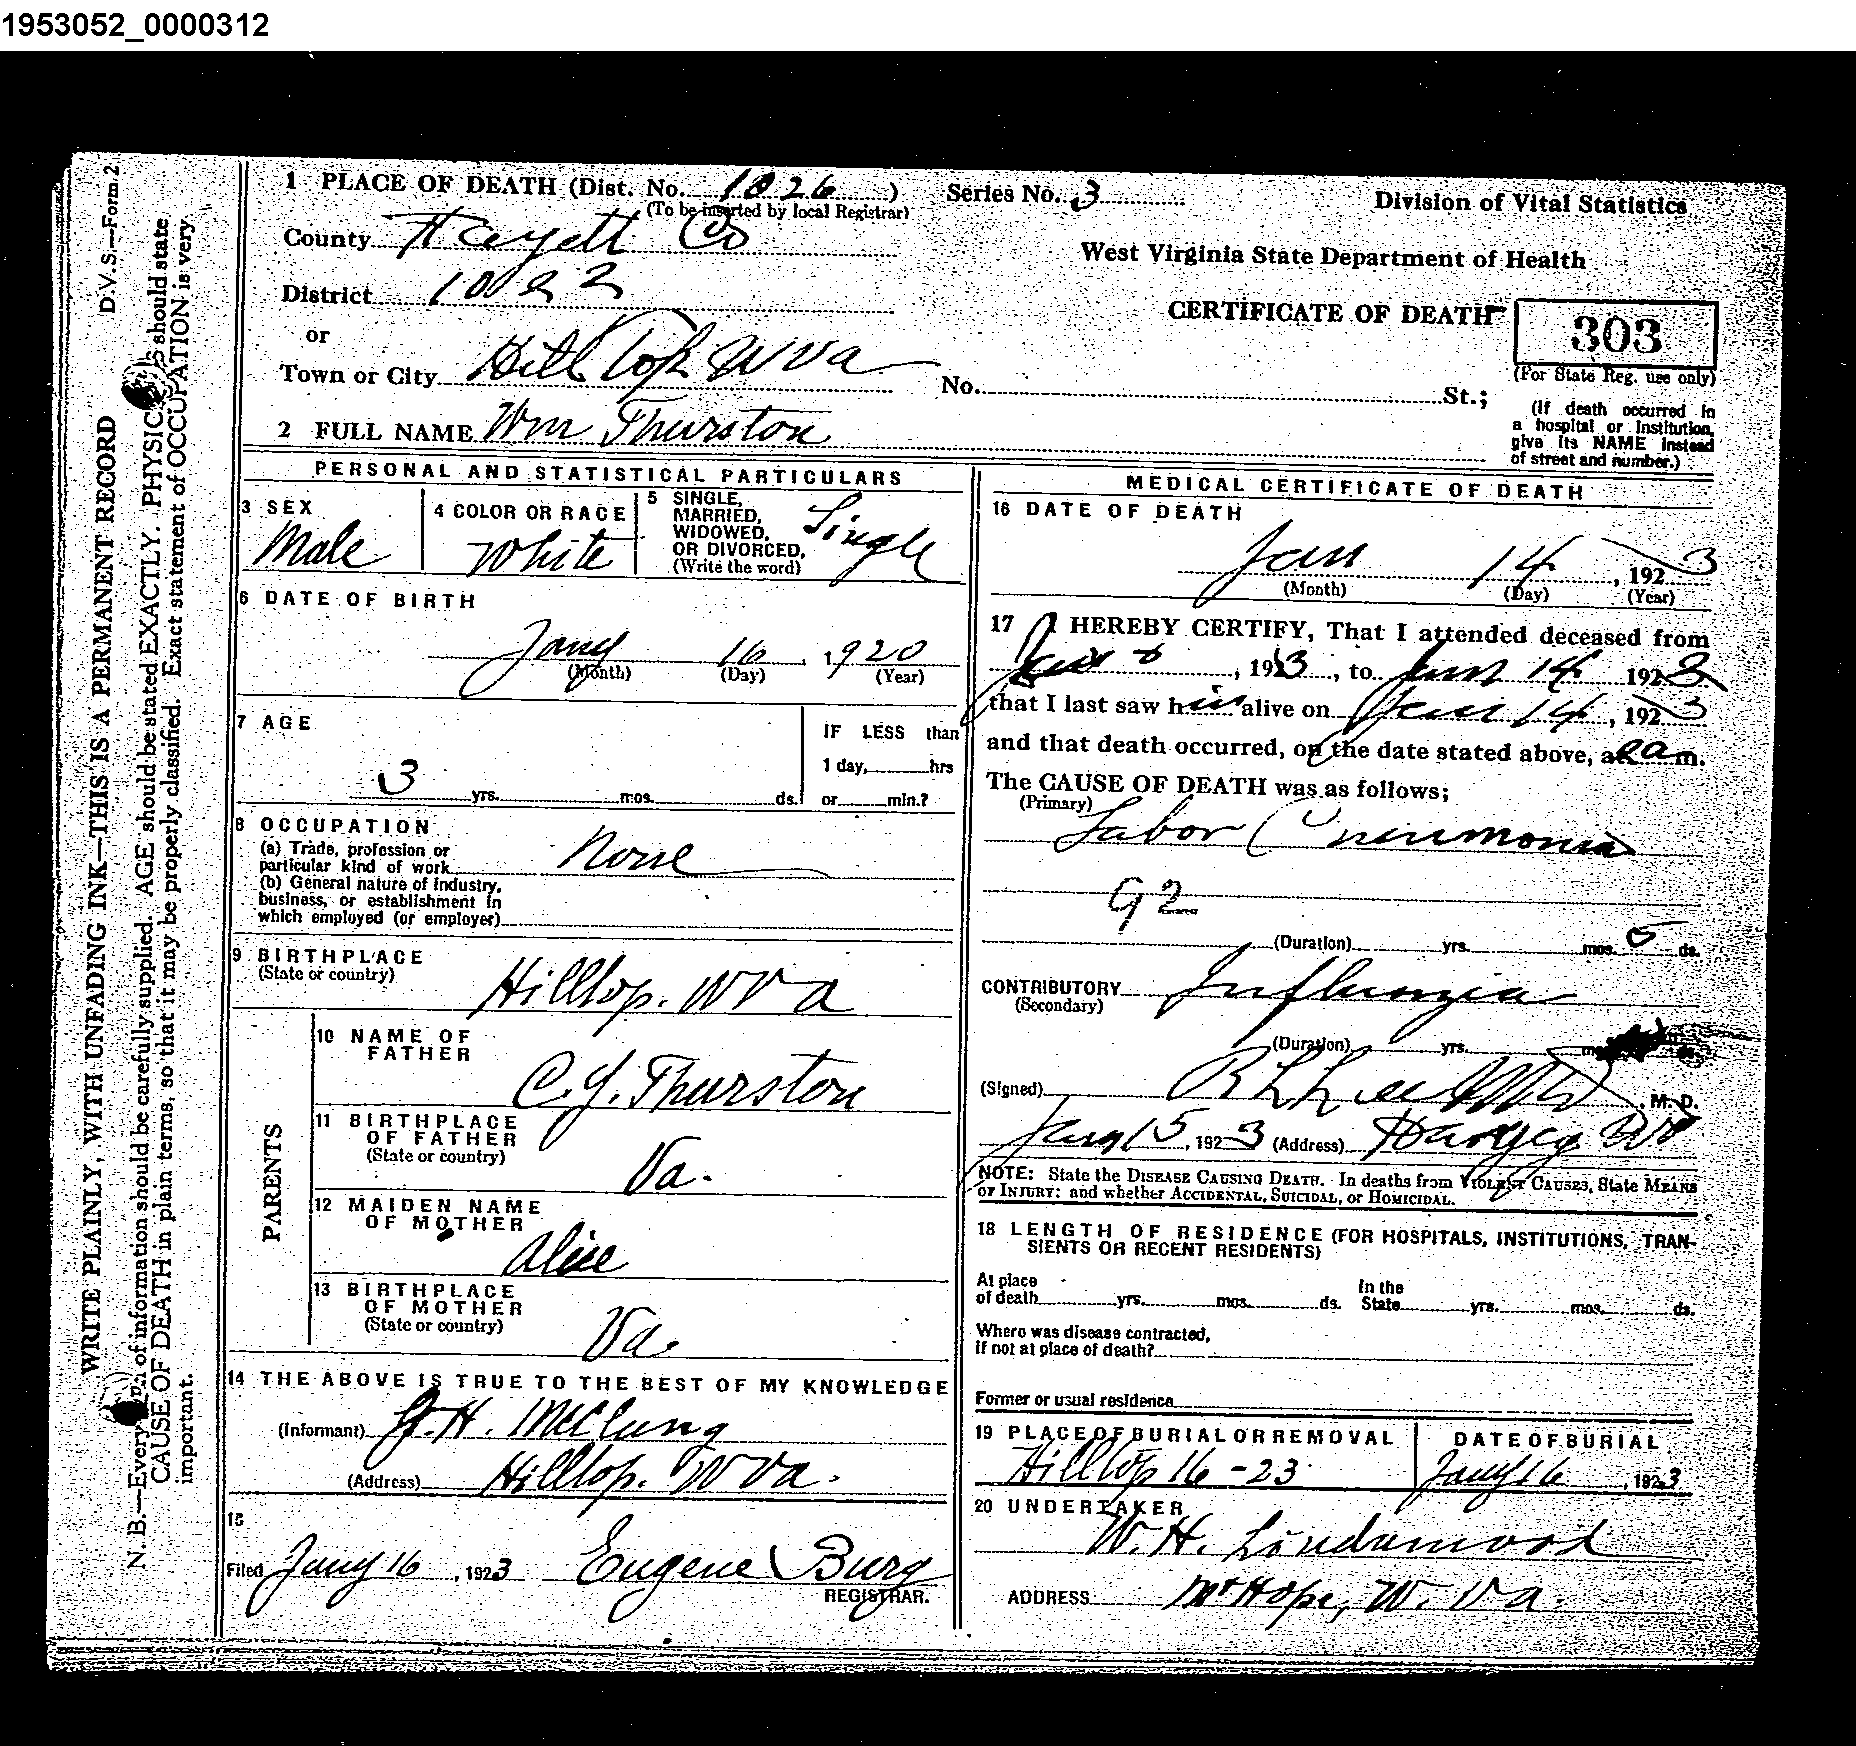 1953052_0000312
1 PLACE OF DEATH (Dist. No. 1026 ) Series No. 3 Division of Vital Statistics
(To be inserted by local Registrar)
County Fayett Co
West Virginia State Department of Health
District 1022
CERTIFICATE OF DEATH 303
or
(For State Reg. use only)
Town or City Hill Top W Va No. St.;
(If death occurred in a hospital or Institution, give its NAME instead of street and number.)
2 FULL NAME Wm Thurston
PERSONAL AND STATISTICAL PARTICULARS
3 SEX Male
4 COLOR OR RACE White
5 SINGLE, MARRIED, WIDOWED, OR DIVORCED, (Write the word) Single
6 DATE OF BIRTH
Jany 16, 1920
(Month) (Day) (Year)
7 AGE
3 yrs. mos. ds.
IF LESS than
1 day, hrs
or min.?
8 OCCUPATION
(a) Trade, profession or
particular kind of work None
(b) General nature of industry,
business, or establishment in
which employed (or employer)
9 BIRTHPLACE
(State or country)
Hilltop. W Va
PARENTS
10 NAME OF FATHER
C. Y. Thurston
11 BIRTHPLACE OF FATHER
(State or country)
Va.
12 MAIDEN NAME OF MOTHER
Alise
13 BIRTHPLACE OF MOTHER
(State or country)
Va.
14 THE ABOVE IS TRUE TO THE BEST OF MY KNOWLEDGE
(Informant) McClung
(Address) Hilltop. W Va.
15
Filed Jany 16, 1923 Eugene Burg
REGISTRAR.
MEDICAL CERTIFICATE OF DEATH
16 DATE OF DEATH
Jan 14, 1923
(Month) (Day) (Year)
17 I HEREBY CERTIFY, That I attended deceased from
, 1923, to Jan 14 1923
that I last saw him alive on Jan 14, 1923
and that death occurred, on the date stated above, at m.
The CAUSE OF DEATH was as follows;
(Primary)
Labor Pneumonia
92
(Duration) yrs. mos. 5 ds.
CONTRIBUTORY Influnzia
(Secondary)
(Duration) yrs.
(Signed) M. D.
Jany 15, 1923 (Address)
NOTE: State the DISEASE CAUSING DEATH. In deaths from VIOLENT CAUSES, State MEANS
OF INJURY: and whether ACCIDENTAL, SUICIDAL, or HOMICIDAL.
18 LENGTH OF RESIDENCE (FOR HOSPITALS, INSTITUTIONS, TRAN-
SIENTS OR RECENT RESIDENTS)
At place of death yrs. mos. ds. In the State yrs. mos. ds.
Where was disease contracted,
if not at place of death?
Former or usual residence
19 PLACE OF BURIAL OR REMOVAL DATE OF BURIAL
Hilltop 16-23 Jany 16, 1923
20 UNDERTAKER
W. H. Lindamood
ADDRESS Mt Hope, W. Va.
D.V.S.—Form 2
WRITE PLAINLY, WITH UNFADING INK—THIS IS A PERMANENT RECORD
N. B.—Every of information should be carefully supplied. AGE should be stated EXACTLY. PHYSIC should state
CAUSE OF DEATH in plain terms, so that it may be properly classified. Exact statement of OCCUPATION is very
important.